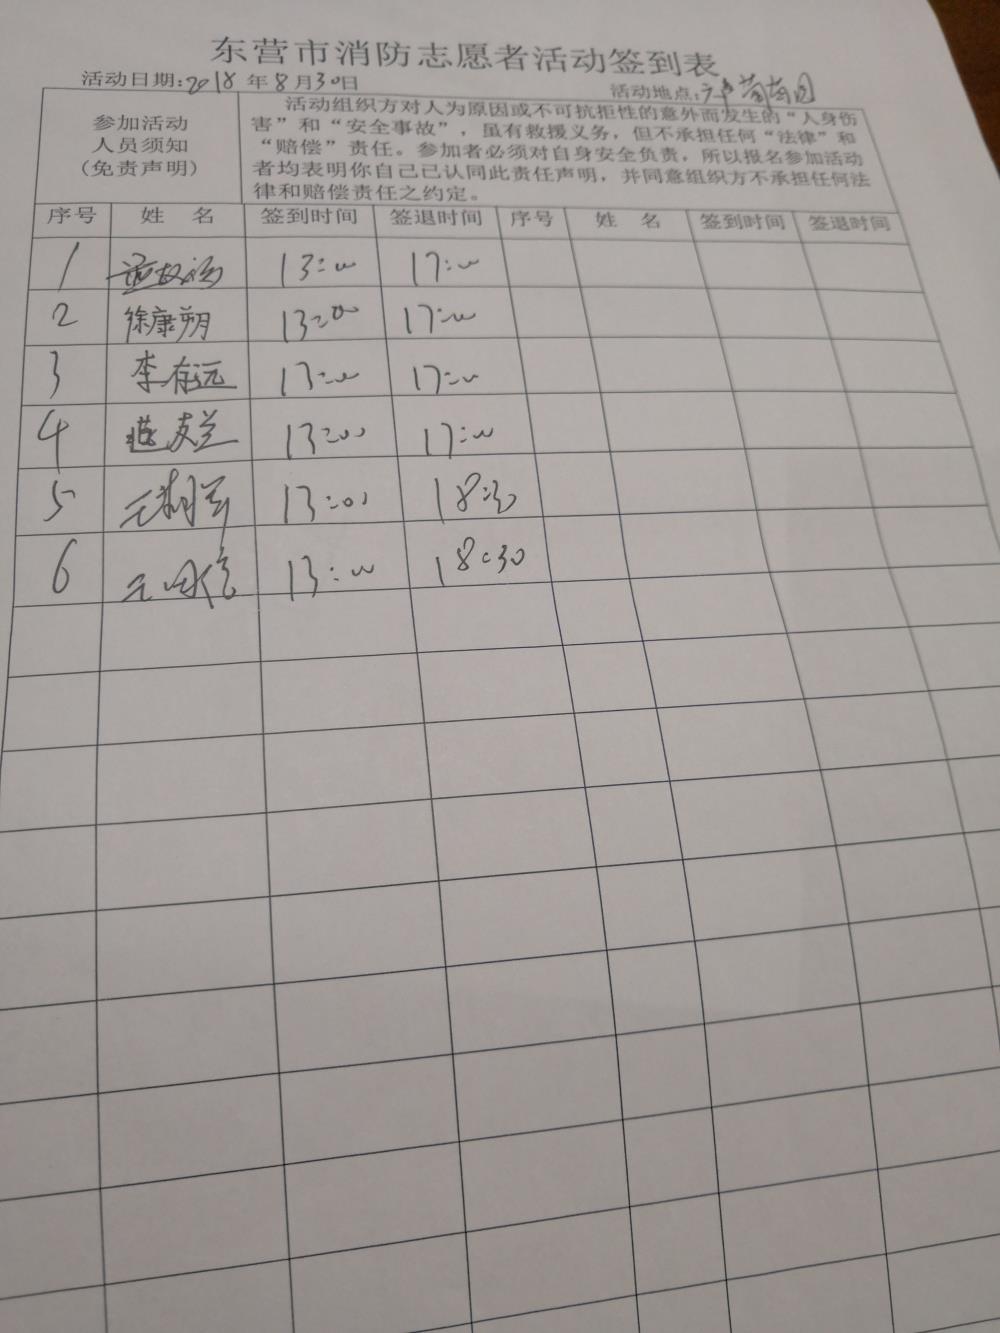 东营市消防志愿者活动签到表
活动日期:2018年8月30日 活动地点:
参加活动
人员须知
(免责声明)
活动组织方对人为原因或不可抗拒性的意外而发生的“人身伤
害”和“安全事故”，虽有救援义务，但不承担任何“法律”和
“赔偿”责任。参加者必须对自身安全负责，所以报名参加活动
者均表明你自己已认同此责任声明，并同意组织方不承担任何法
律和赔偿责任之约定。
序号 姓 名 签到时间 签退时间 序号 姓 名 签到时间 签退时间
1 13:00 17:00
2 徐康朔 13:00 17:00
3 李存远 13:00 17:00
4 13:00 17:00
5 13:00 18:30
6 13:00 18:30